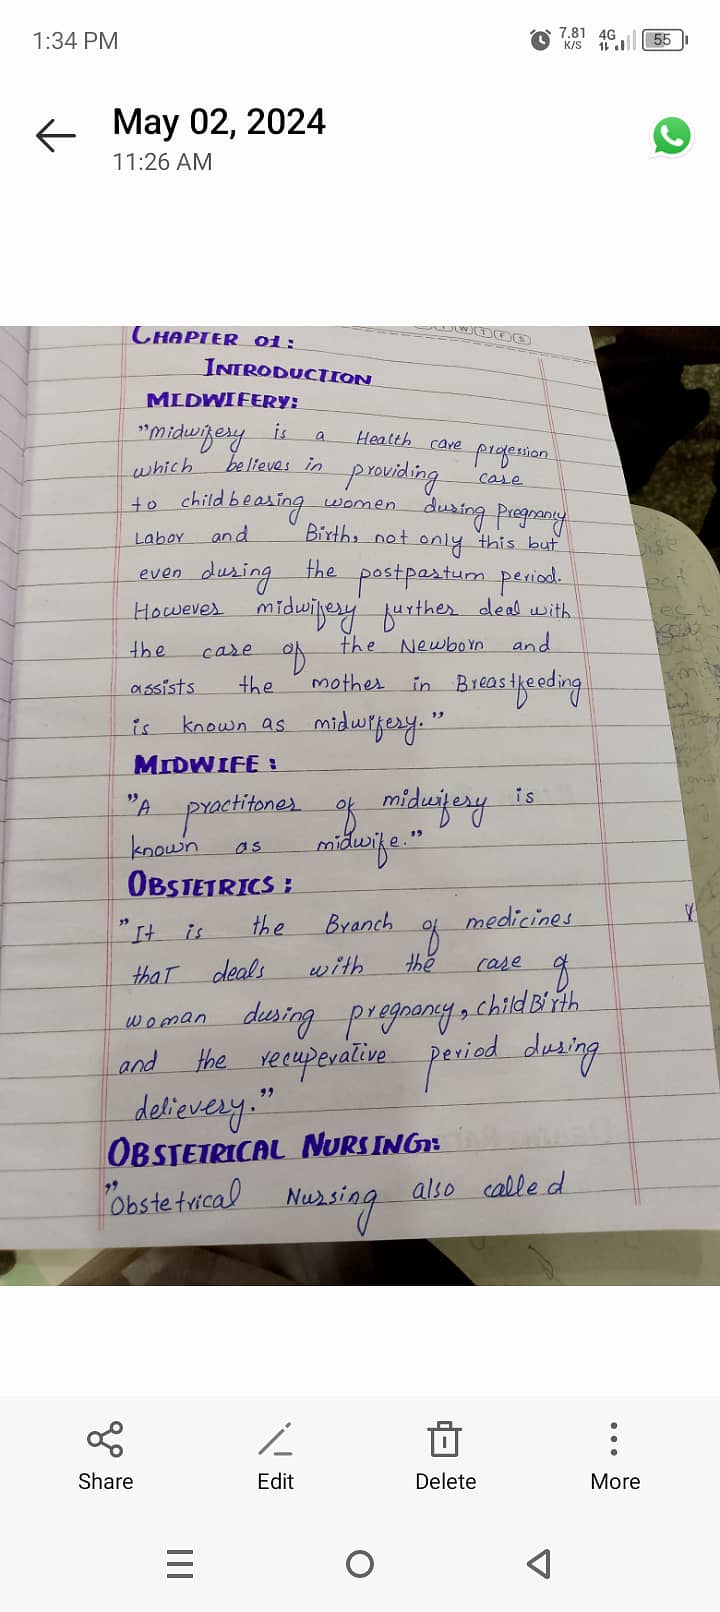 1:34 PM
7.81 K/S 4G 55
May 02, 2024
11:26 AM
CHAPTER 01:
INTRODUCTION
MIDWIFERY:
"midwifery is a Health care profession
which believes in providing care
to childbearing women during Pregnancy
Labor and Birth, not only this but
even during the postpartum period.
However midwifery further deal with
the care of the Newborn and
assists the mother in Breastfeeding
is known as midwifery."
MIDWIFE:
"A practitoner of midwifery is
known as midwife."
OBSTETRICS:
"It is the Branch of medicines
that deals with the care of
woman during pregnancy, childBirth
and the recuperative period during
delievery."
OBSTETRICAL NURSING:
"Obstetrical Nursing also called
Share Edit Delete More